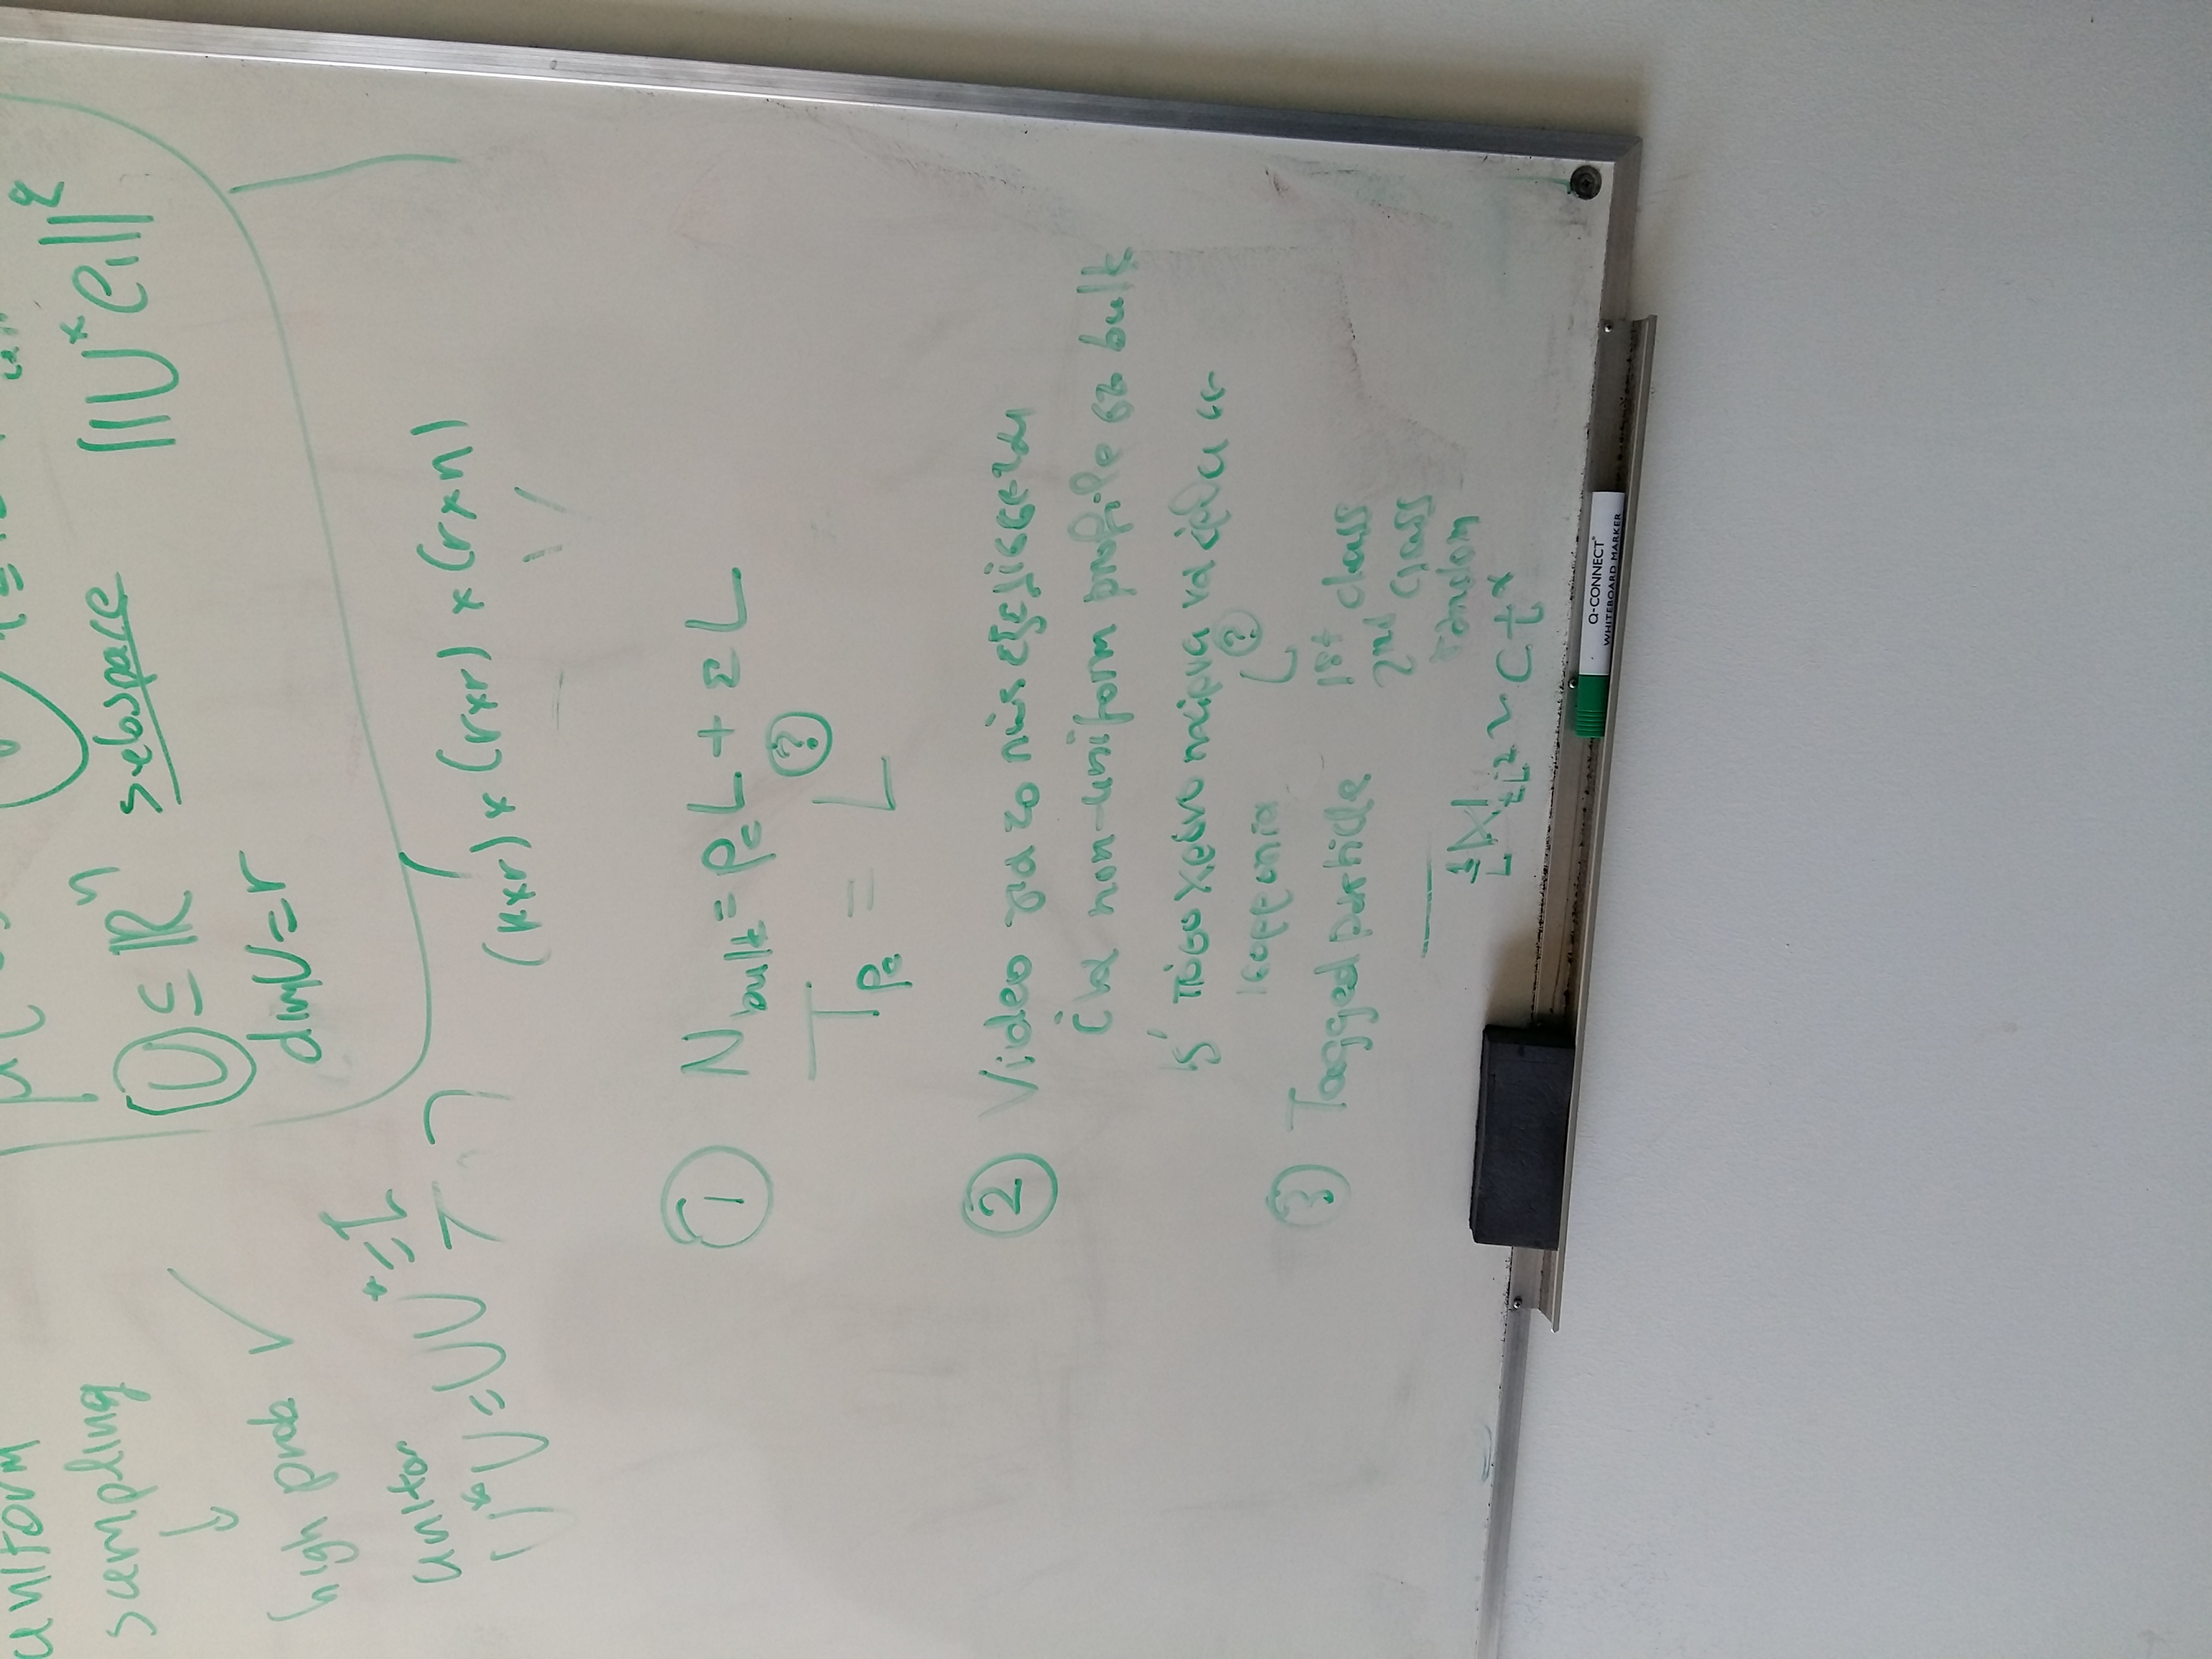 uniform
sampling
↓
high prob. ✓
unitar
U*U = UU* = I
U ⊆ ℝⁿ subspace
‖U*eᵢ‖²
dim U = r
(n×r) × (r×r) × (r×n)
① N_bulk = ρ_c L + εL
T_ρc = L^?
② Video για το πώς εξελίσσεται
ένα non-uniform profile στο bulk
ϗ' πόσο χρόνο παίρνει να έρθει σε
ισορροπία L^?
③ Tagged particle 1st class
2nd class
random
1/L X_tL² ~ C t^α
Q-CONNECT®
WHITEBOARD MARKER